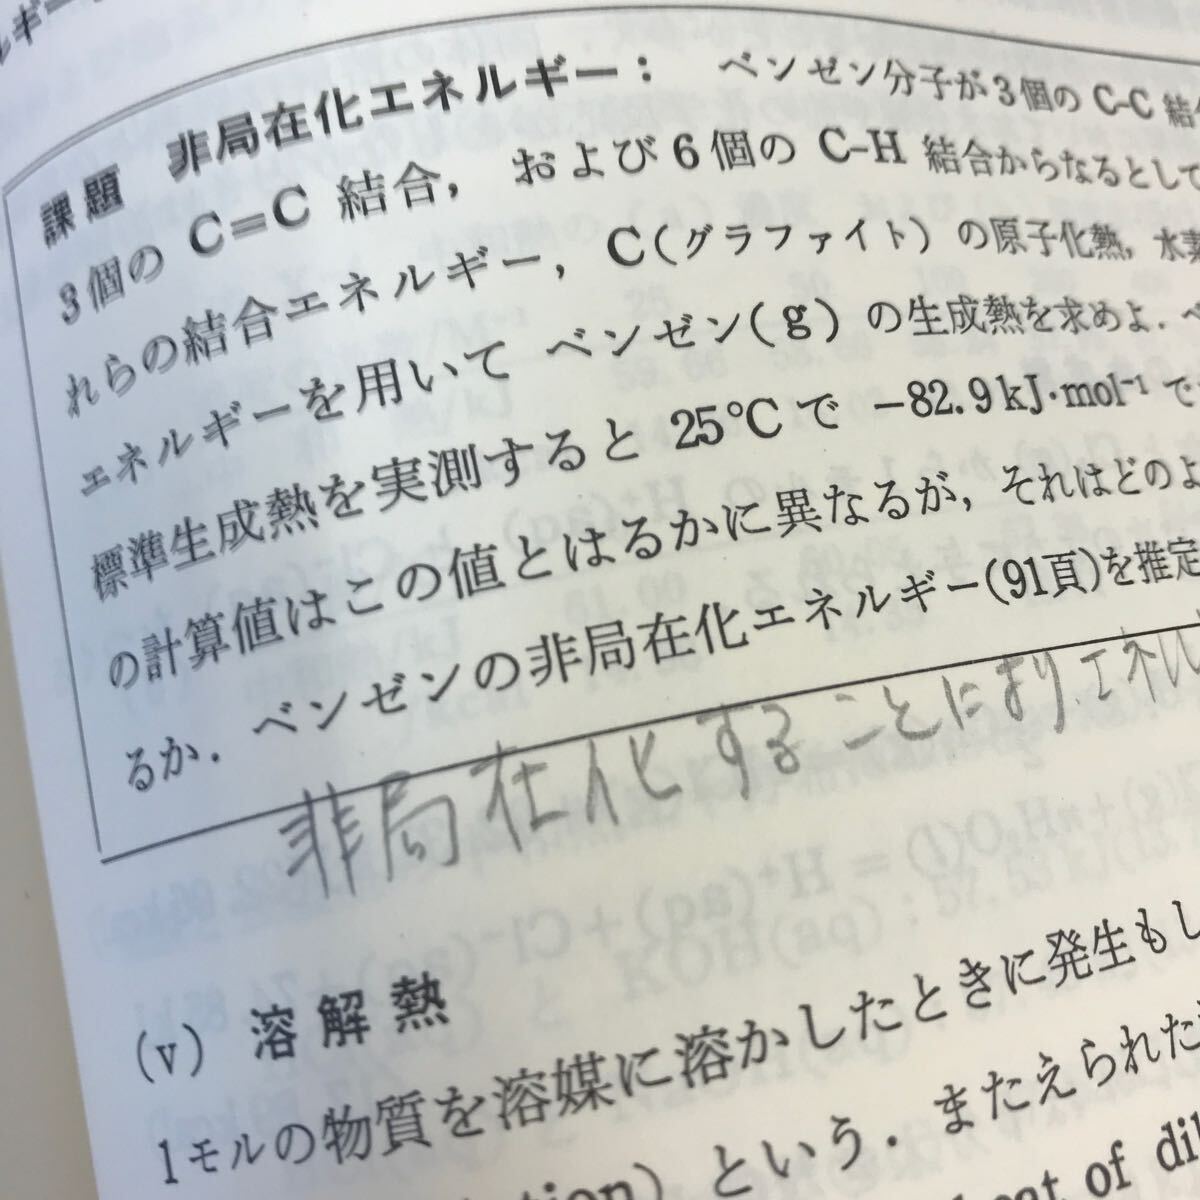 ルギー
課題 非局在化エネルギー： ベンゼン分子が3個の C-C 結
3個の C=C 結合， および6個の C-H 結合からなるとして
れらの結合エネルギー，C(グラファイト) の原子化熱，水素
エネルギーを用いて ベンゼン(g) の生成熱を求めよ．ベ
標準生成熱を実測すると 25℃で −82.9kJ·mol⁻¹ で
の計算値はこの値とはるかに異なるが，それはどのよ
るか．ベンゼンの非局在化エネルギー(91頁)を推定
非局在化することによりエネル
(v) 溶解熱
1モルの物質を溶媒に溶かしたときに発生もし
という．またえられた
of dil